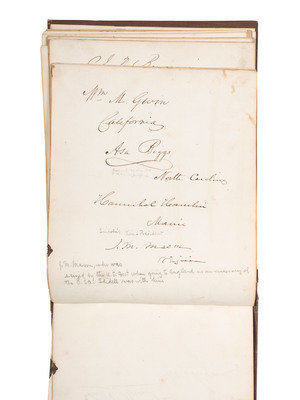 Wm M. Gwin
California
Asa Biggs
North Carolina
Hannibal Hamlin
Maine
Lincoln's Vice President
J. M. Mason
Virginia
J. M. Mason, who was
seized by the U.S. Govt when going to England as an emissary of
the C.S.A. Slidell was with him